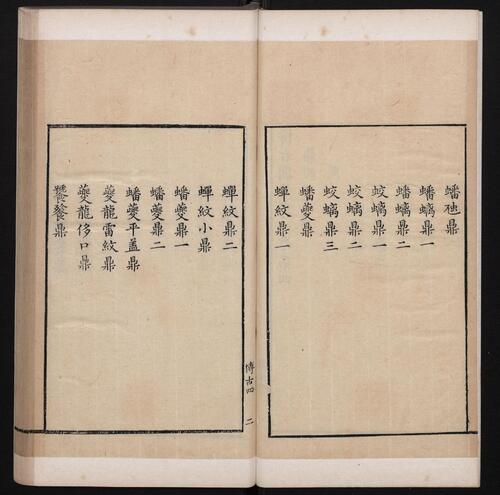 蟠虵鼎
蟠螭鼎一
蟠螭鼎二
蛟螭鼎一
蛟螭鼎二
蛟螭鼎三
蟠夔鼎
蟬紋鼎一
博古四 二
蟬紋鼎二
蟬紋小鼎
蟠夔鼎一
蟠夔鼎二
蟠夔平蓋鼎
夔龍雷紋鼎
夔龍侈口鼎
饕餮鼎